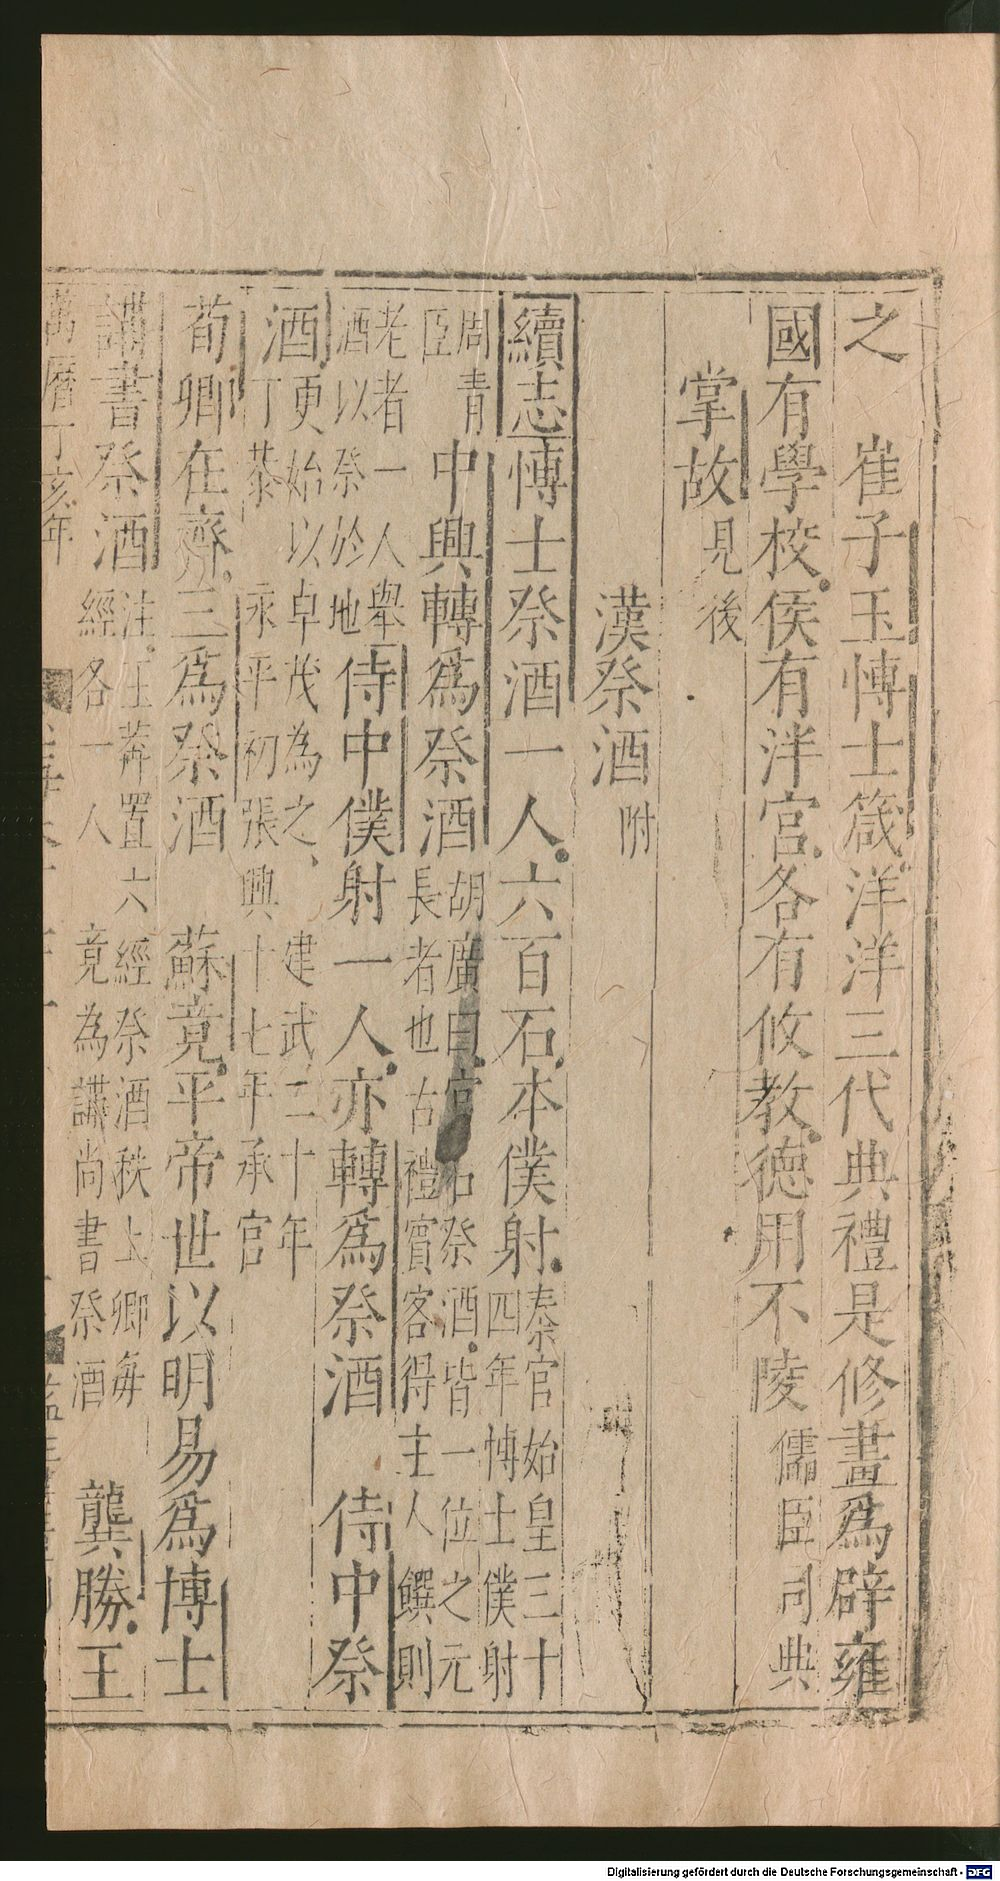 之　崔子玉愽士箴洋洋三代典禮是修畫爲辟雍
國有學校侯有泮宫各有攸教德用不陵儒臣司典
掌故見後
漢祭酒附
續志愽士祭酒一人六百石本僕射秦官始皇三十
四年愽士僕射
周青
臣
中興轉爲祭酒胡廣曰官名祭酒皆一位之元
長者也古禮賓客得主人饌則
老者一人舉
酒以祭於地
侍中僕射一人亦轉爲祭酒　侍中祭
酒更始以卓茂為之建武二十年
丁恭永平初張興十七年承宫
荀卿在齊三爲祭酒　蘇竟平帝世以明易爲博士
講書祭酒注王莽置六經祭酒秩上卿每
經各一人竟為講尚書祭酒
龔勝王
萬曆丁亥年
Digitalisierung gefördert durch die Deutsche Forschungsgemeinschaft - DFG